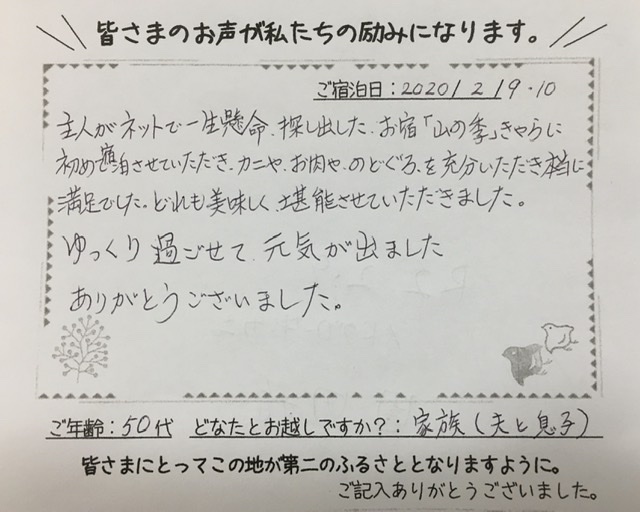 皆さまのお声が私たちの励みになります。
ご宿泊日：2020/2/9・10
主人がネットで一生懸命、探し出した、お宿「山の季」きゃらに
初めて宿泊させていただき、カニや、お肉や、のどぐろ、を充分いただき本当に
満足でした。どれも美味しく、堪能させていただきました。
ゆっくり過ごせて、元気が出ました
ありがとうございました。
ご年齢：50代 どなたとお越しですか？：家族（夫と息子）
皆さまにとってこの地が第二のふるさととなりますように。
ご記入ありがとうございました。